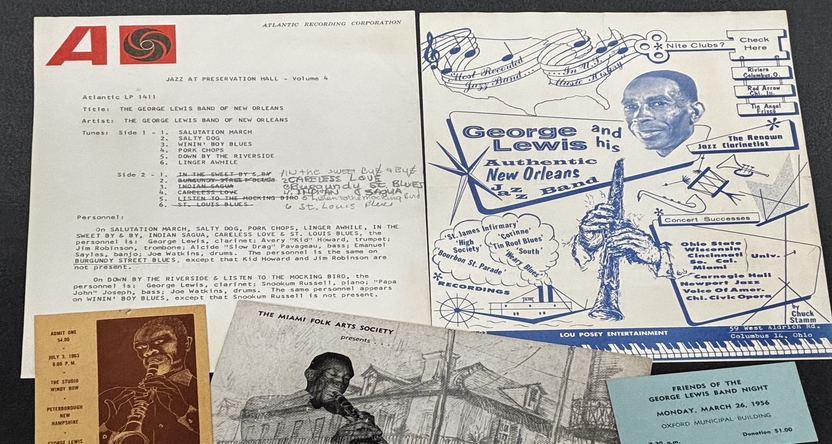 A
ATLANTIC RECORDING CORPORATION
JAZZ AT PRESERVATION HALL - Volume 4
Atlantic LP 1411
Title: THE GEORGE LEWIS BAND OF NEW ORLEANS
Artist: THE GEORGE LEWIS BAND OF NEW ORLEANS
Tunes: Side 1 - 1. SALUTATION MARCH
2. SALTY DOG
3. WININ' BOY BLUES
4. PORK CHOPS
5. DOWN BY THE RIVERSIDE
6. LINGER AWHILE
Side 2 - 1. IN THE SWEET BY & BY 1 IN the SWEET By & By
2. BURGUNDY STREET BLUES 2 CARELESS LOVE
3. INDIAN SAGUA 3 Burgundy St. BLUES
4. CARELESS LOVE 4 INDIAN SAGUA
5. LISTEN TO THE MOCKING BIRD 5 Listen to the mocking bird
6. ST. LOUIS BLUES 6 St. Louis Blues
Personnel:
On SALUTATION MARCH, SALTY DOG, PORK CHOPS, LINGER AWHILE, IN THE
SWEET BY & BY, INDIAN SAGUA, CARELESS LOVE & ST. LOUIS BLUES, the
personnel is: George Lewis, clarinet; Avery "Kid" Howard, trumpet;
Jim Robinson, trombone; Alcide "Slow Drag" Pavageau, bass; Emanuel
Sayles, banjo; Joe Watkins, drums. The personnel is the same on
BURGUNDY STREET BLUES, except that Kid Howard and Jim Robinson are
not present.
On DOWN BY THE RIVERSIDE & LISTEN TO THE MOCKING BIRD, the
personnel is: George Lewis, clarinet; Snookum Russell, piano; "Papa
John" Joseph, bass; Joe Watkins, drums. The same personnel appears
on WININ' BOY BLUES, except that Snookum Russell is not present.
Most Recorded
Jazz Band
In U.S.
Music History
Nite Clubs?
Check
Here
Riviera
Columbus, O.
Red Arrow
Chi. Ill.
Tin Angel
Frisco
George and
Lewis his
Authentic
New Orleans
Jazz Band
The Renown
Jazz Clarinetist
Concert Successes
Ohio State
Wisconsin
Cincinnati Univ.
So. Cal.
Miami
Carnegie Hall
Newport Jazz
Voice Of Amer.
Chi. Civic Opera
"St. James Infirmary"
"High
Society"
"Corinne"
"Tin Roof Blues"
South"
"Bourbon St. Parade"
Blues
RECORDINGS
by
Chuck
Stamm
LOU POSEY ENTERTAINMENT
59 West Aldrich Rd.
Columbus 14, Ohio
ADMIT ONE
$4.00
JULY 3, 1963
THE STUDIO
WINDY ROW
PETERBOROUGH
NEW
HAMPSHIRE
GEORGE LEWIS
THE MIAMI FOLK ARTS SOCIETY
presents
FRIENDS OF THE
GEORGE LEWIS BAND NIGHT
MONDAY, MARCH 26, 1956
OXFORD MUNICIPAL BUILDING
Donation $1.00